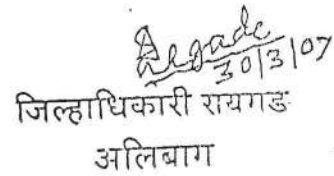 30/3/07
जिल्हाधिकारी रायगड
अलिबाग